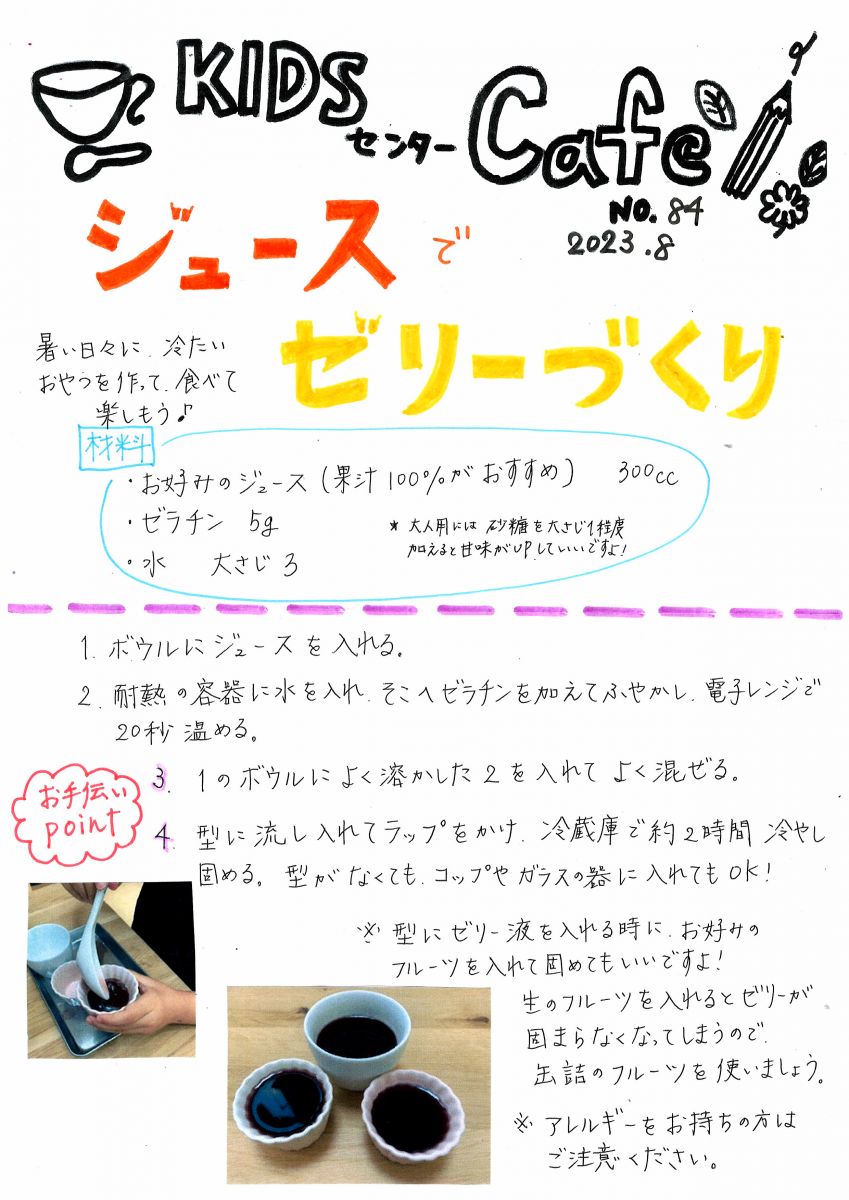 KIDS
センター Cafe
NO. 84
2023.8
ジュースで
ゼリーづくり
暑い日々に、冷たい
おやつを作って、食べて
楽しもう♪
材料
・お好みのジュース(果汁100%がおすすめ) 300cc
・ゼラチン 5g
・水 大さじ3
* 大人用には砂糖を大さじ1程度
加えると甘味がUPしていいですよ!
1. ボウルにジュースを入れる。
2. 耐熱の容器に水を入れ、そこへゼラチンを加えてふやかし、電子レンジで
20秒温める。
お手伝い
point
3. 1のボウルによく溶かした2を入れてよく混ぜる。
4. 型に流し入れてラップをかけ、冷蔵庫で約2時間冷やし
固める。型がなくても、コップやガラスの器に入れてもOK!
※ 型にゼリー液を入れる時に、お好みの
フルーツを入れて固めてもいいですよ!
生のフルーツを入れるとゼリーが
固まらなくなってしまうので、
缶詰のフルーツを使いましょう。
※ アレルギーをお持ちの方は
ご注意ください。